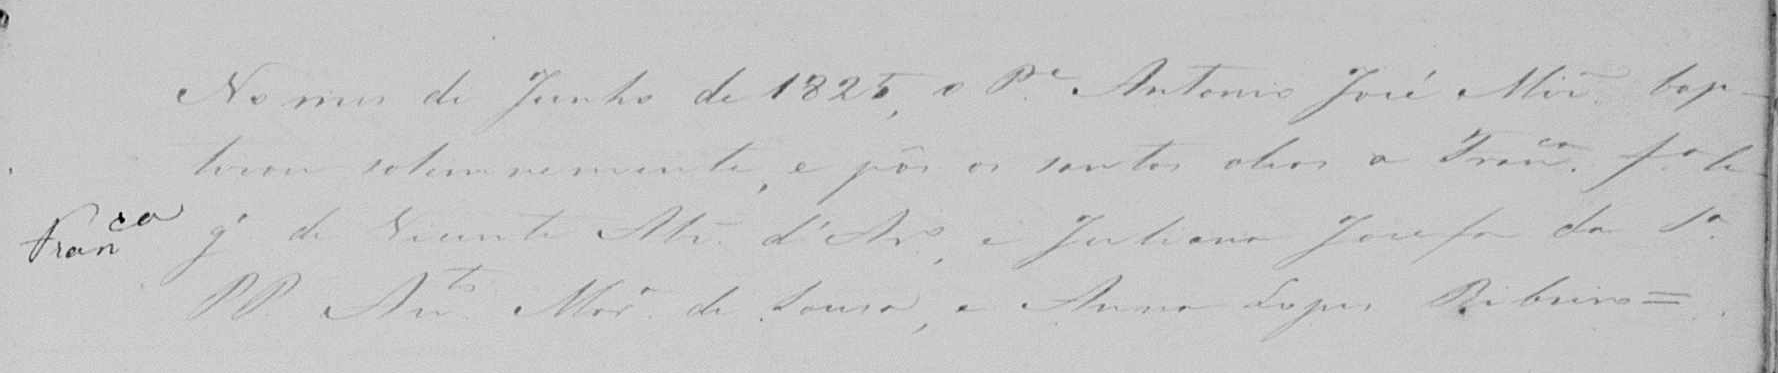 No mes de Junho de 1825, o P.e Antonio José Mor.a bap-
tisou solemnemente, e pôs os santos oleos a Fran.ca f.a le-
Fran.ca
g.a de Vicente Alz. d'Ar.o, e Juliana Josefa da S.a
PP. An.to Mor.a de Sousa, e Anna Lopes Ribeiro=